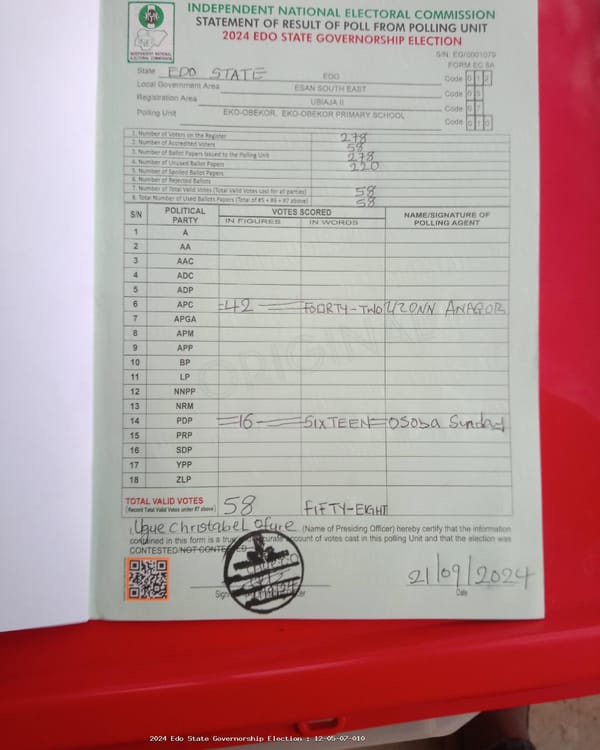 INDEPENDENT NATIONAL ELECTORAL COMMISSION
STATEMENT OF RESULT OF POLL FROM POLLING UNIT
2024 EDO STATE GOVERNORSHIP ELECTION
INDEPENDENT NATIONAL
ELECTORAL COMMISSION
S/N: EG/0001079
FORM EC 8A
State EDO STATE EDO Code 0 1 2
Local Government Area ESAN SOUTH EAST Code 0 5
Registration Area UBIAJA II Code 0 7
Polling Unit EKO-OBEKOR, EKO-OBEKOR PRIMARY SCHOOL Code 0 1 0
1. Number of Voters on the Register 278
2. Number of Accredited Voters 58
3. Number of Ballot Papers Issued to the Polling Unit 278
4. Number of Unused Ballot Papers 220
5. Number of Spoiled Ballot Papers
6. Number of Rejected Ballots
7. Number of Total Valid Votes (Total Valid Votes cast for all parties) 58
8. Total Number of Used Ballots Papers (Total of #5 + #6 + #7 above) 58
S/N POLITICAL PARTY VOTES SCORED NAME/SIGNATURE OF POLLING AGENT
IN FIGURES IN WORDS
1 A
2 AA
3 AAC
4 ADC
5 ADP
6 APC =42= FOURTY-TWO UZONN ANAGOR
7 APGA
8 APM
9 APP
10 BP
11 LP
12 NNPP
13 NRM
14 PDP =16= SIXTEEN= OSOBA Sunday
15 PRP
16 SDP
17 YPP
18 ZLP
ORIGINAL
TOTAL VALID VOTES 58 FIFTY-EIGHT
(Record Total Valid Votes under #7 above)
I, Ugue Christabel Ofure (Name of Presiding Officer) hereby certify that the information
contained in this form is a true and accurate account of votes cast in this polling Unit and that the election was
CONTESTED/NOT CONTESTED
21/09/2024
Date
2024 Edo State Governorship Election : 12-05-07-010